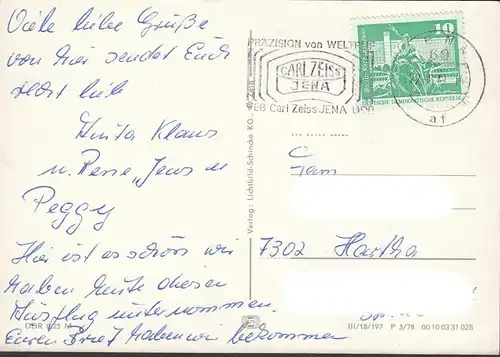 Viele liebe Grüße
von hier sendet Euch
recht lieb
Anita Klaus
u. Rene, Jens u.
Peggy
Hier ist es schön wir
haben heute diesen
Ausflug unternommen.
Euren Brief haben wir bekommen
DDR 0,25 M
Verlag: Lichtbild-Schincke KG.
PRÄZISION von WELTRUF
CARL ZEISS
JENA
VEB Carl Zeiss JENA DDR
10
DEUTSCHE DEMOKRATISCHE REPUBLIK
af
Fam
7302 Hartha
III/18/197 P 3/78 00 10 03 31 025